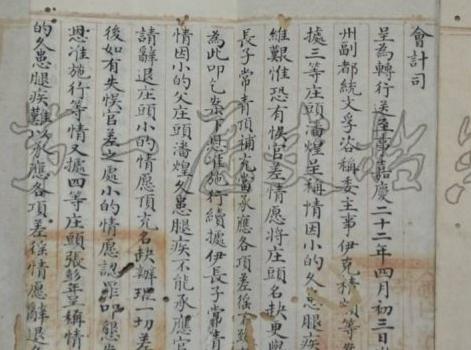 會計司
呈為轉行送至事嘉慶二十二年四月初三日
州副都統文孚咨稱委主事伊克精額等
據三等庄頭潘煌呈稱情因小的久患腿疾
維艱惟恐有悞官差情愿將庄頭名缺更
長子常青頂補充當承應各項差徭
為此叩乞案下恩准施行續據伊長子常青
情因小的父庄頭潘煌久患腿疾不能承應官
請辭退庄頭小的情愿頂充名缺辦理一切差
後如有失悞官差之處小的情愿認罪叩懇
恩准施行等情又據四等庄頭張彭年呈稱情
的久患腿疾難以承應各項差徭情愿辭退